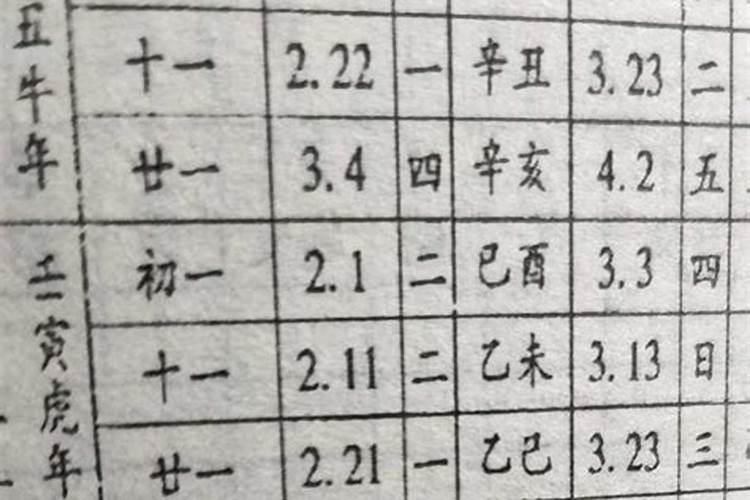 丑牛年
十一 2.22 一 辛丑 3.23 二
廿一 3.4 四 辛亥 4.2 五
壬寅虎年
初一 2.1 二 巳酉 3.3 四
十一 2.11 二 乙未 3.13 日
廿一 2.21 一 乙巳 3.23 三